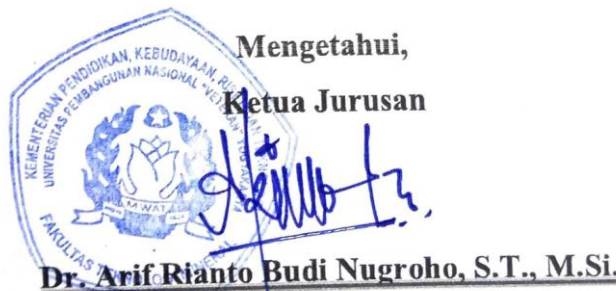 Mengetahui,
Ketua Jurusan
KEMENTERIAN PENDIDIKAN, KEBUDAYAAN,
UNIVERSITAS PEMBANGUNAN NASIONAL "VETERAN"
FAKULTAS
Dr. Arif Rianto Budi Nugroho, S.T., M.Si.